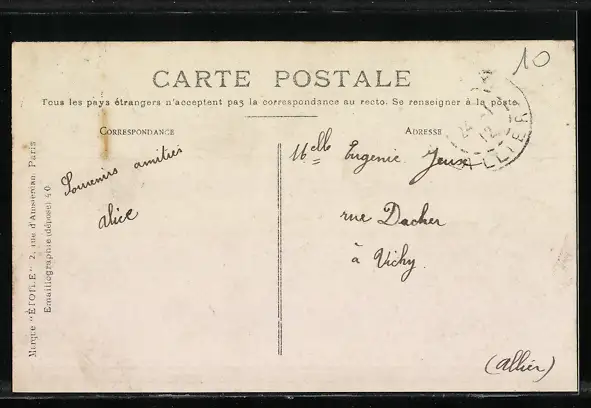 10
CARTE POSTALE
Tous les pays étrangers n'acceptent pas la correspondance au recto. Se renseigner à la poste
CORRESPONDANCE
ADRESSE
Souvenirs amitiés
Alice
Mlle Eugenie
rue Dacher
à Vichy.
(Allier)
Marque "ÉTOILE" 2, rue d'Amsterdam, Paris
Émaillographie (déposé) 40.
ALLIER